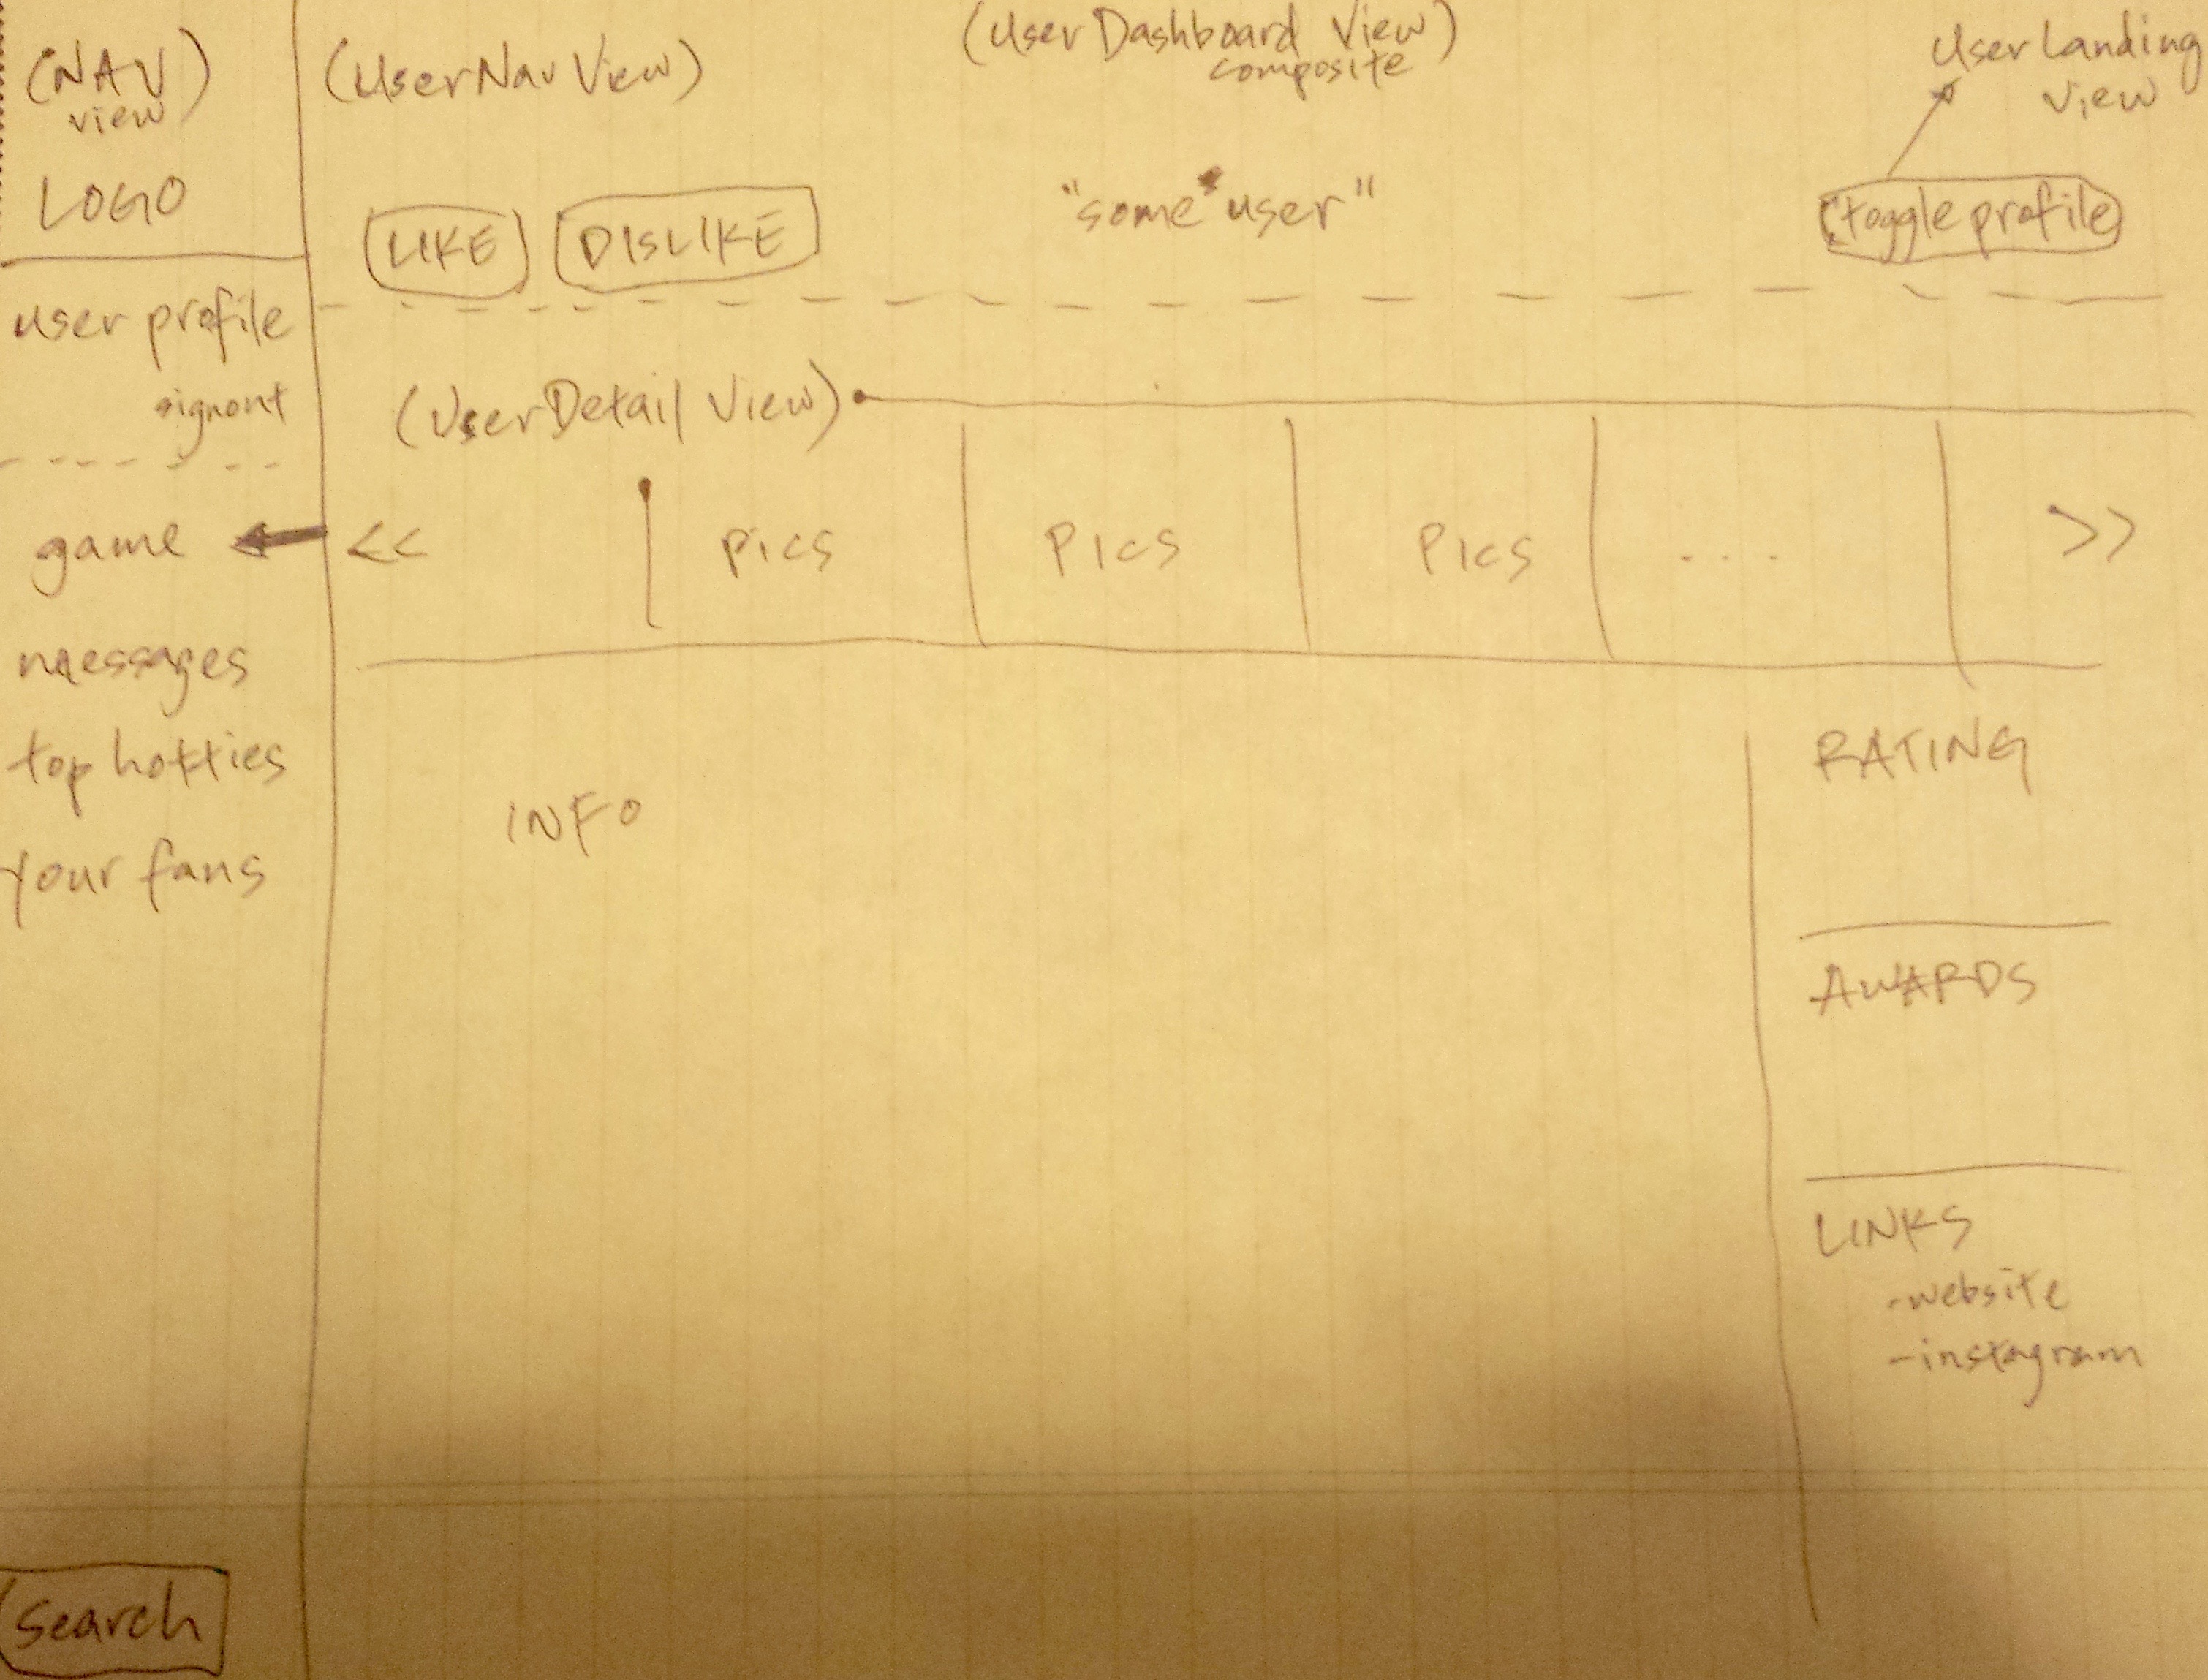 (NAV
view)
LOGO
user profile
signout
game
messages
top hotties
your fans
search
(UserNav View)
(User Dashboard View)
composite
User Landing
View
LIKE
DISLIKE
"some user"
toggle profile
(UserDetail View)
<<
pics
PICS
PICS
....
>>
INFO
RATING
AWARDS
LINKS
-website
-instagram